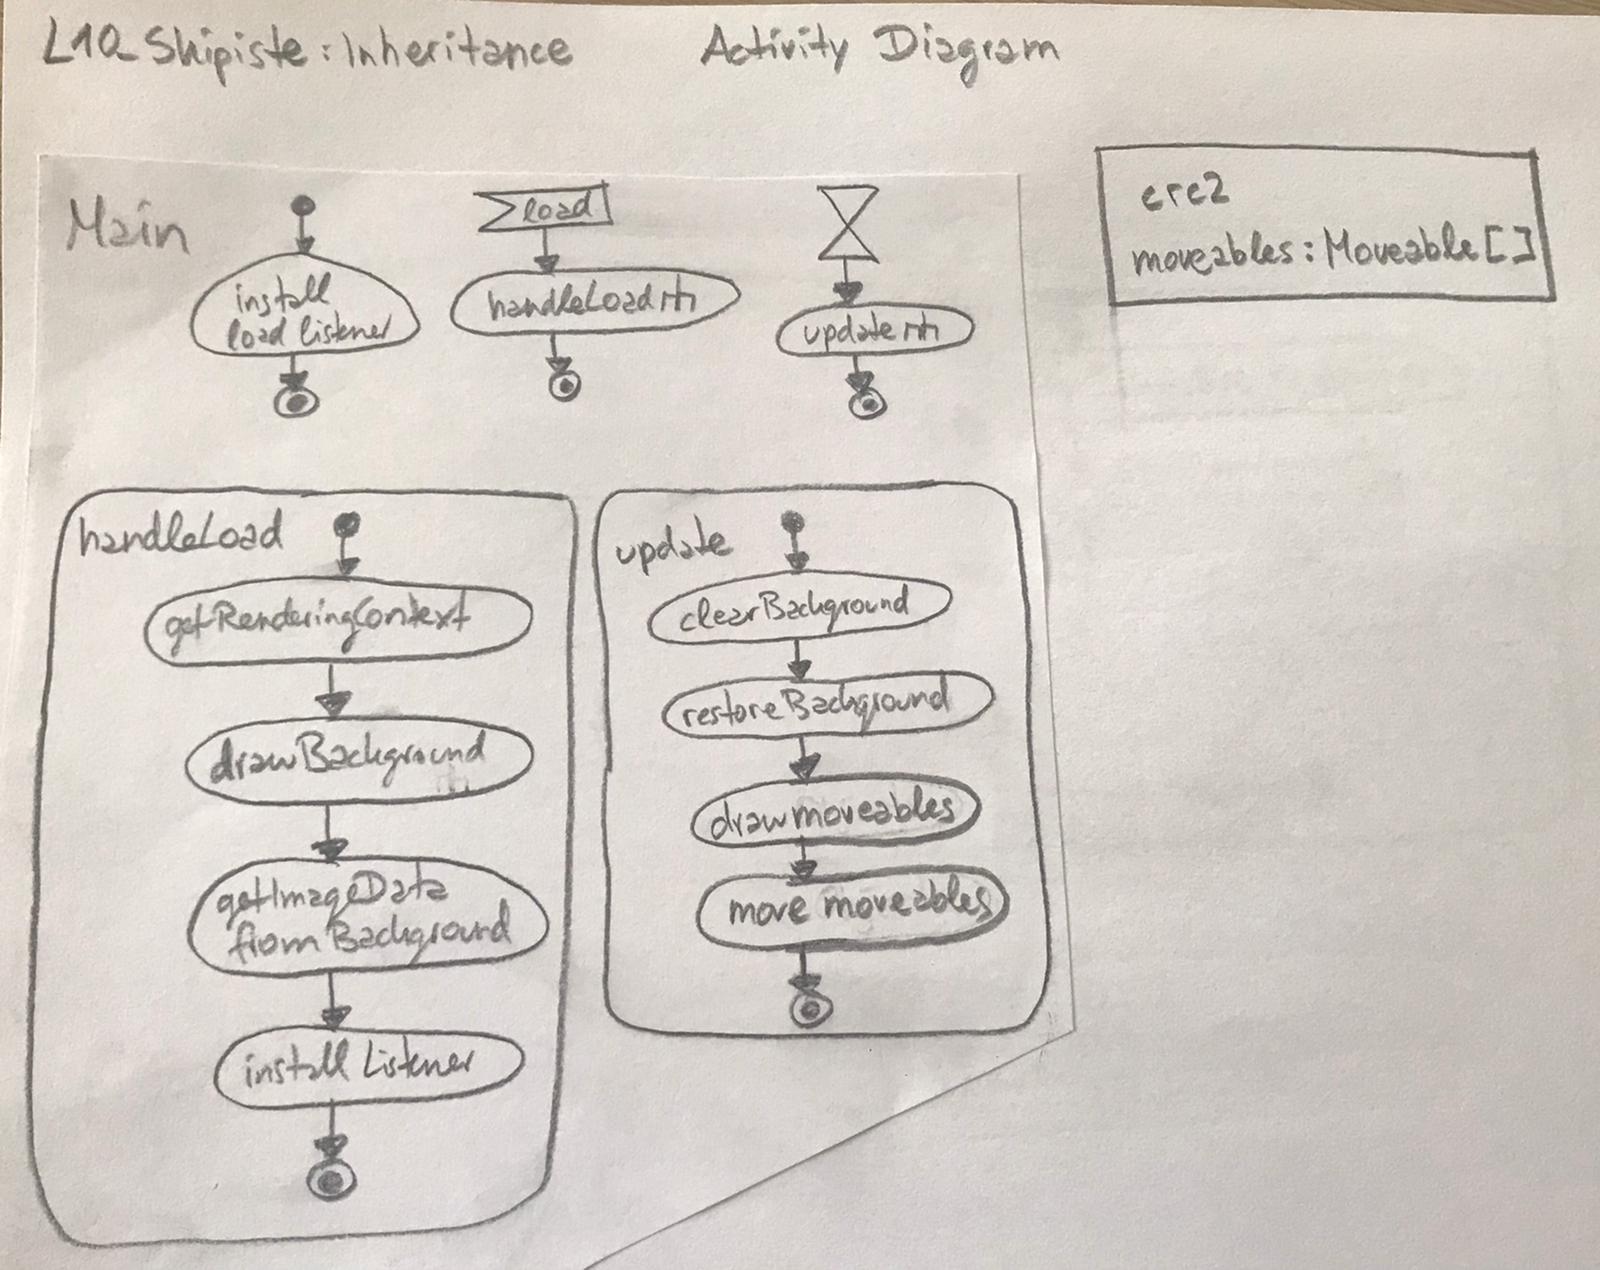 L10_Skipiste: Inheritance Activity Diagram
Main
install
load listener
load
handleLoad
update
crc2
moveables: Moveable[]
handleLoad
getRenderingContext
drawBackground
getImageData
from Background
install Listener
update
clearBackground
restoreBackground
draw moveables
move moveables